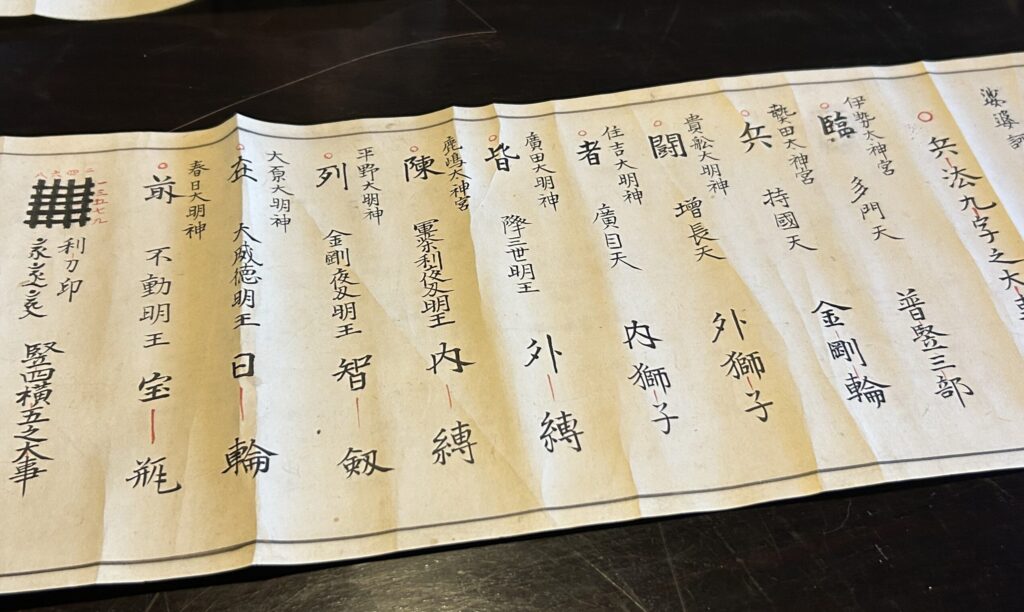 兵法九字之大
伊勢太神宮
臨 多門天 普賢三部
熱田太神宮
兵 持國天 金剛輪
貴舩大明神
闘 増長天 外獅子
住吉大明神
者 廣目天 内獅子
廣田大明神
皆 降三世明王 外縛
鹿嶋太神宮
陳 軍荼利夜叉明王 内縛
平野大明神
列 金剛夜叉明王 智剱
大原大明神
在 大威徳明王 日輪
春日大明神
前 不動明王 宝瓶
二四六八
一三五七九
利刀印
竪四横五之大事